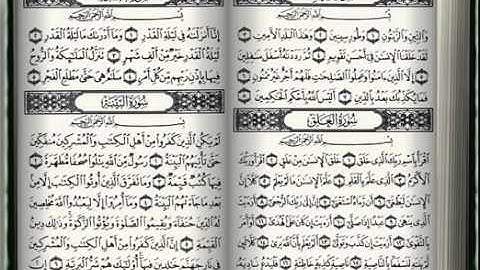 بِسْمِ ٱللَّهِ ٱلرَّحْمَٰنِ ٱلرَّحِيمِ
وَٱلتِّينِ وَٱلزَّيْتُونِ ۝١ وَطُورِ سِينِينَ ۝٢ وَهَٰذَا ٱلْبَلَدِ ٱلْأَمِينِ ۝٣
لَقَدْ خَلَقْنَا ٱلْإِنسَٰنَ فِىٓ أَحْسَنِ تَقْوِيمٍ ۝٤ ثُمَّ رَدَدْنَٰهُ أَسْفَلَ سَٰفِلِينَ ۝٥
إِلَّا ٱلَّذِينَ ءَامَنُوا۟ وَعَمِلُوا۟ ٱلصَّٰلِحَٰتِ فَلَهُمْ أَجْرٌ غَيْرُ مَمْنُونٍ ۝٦
فَمَا يُكَذِّبُكَ بَعْدُ بِٱلدِّينِ ۝٧ أَلَيْسَ ٱللَّهُ بِأَحْكَمِ ٱلْحَٰكِمِينَ ۝٨
سُورَةُ ٱلْعَلَقِ
بِسْمِ ٱللَّهِ ٱلرَّحْمَٰنِ ٱلرَّحِيمِ
ٱقْرَأْ بِٱسْمِ رَبِّكَ ٱلَّذِى خَلَقَ ۝١ خَلَقَ ٱلْإِنسَٰنَ مِنْ عَلَقٍ ۝٢ ٱقْرَأْ وَرَبُّكَ
ٱلْأَكْرَمُ ۝٣ ٱلَّذِى عَلَّمَ بِٱلْقَلَمِ ۝٤ عَلَّمَ ٱلْإِنسَٰنَ مَا لَمْ يَعْلَمْ ۝٥ كَلَّآ
إِنَّ ٱلْإِنسَٰنَ لَيَطْغَىٰٓ ۝٦ أَن رَّءَاهُ ٱسْتَغْنَىٰٓ ۝٧ إِنَّ إِلَىٰ رَبِّكَ ٱلرُّجْعَىٰٓ ۝٨ أَرَءَيْتَ
ٱلَّذِى يَنْهَىٰ ۝٩ عَبْدًا إِذَا صَلَّىٰٓ ۝١٠ أَرَءَيْتَ إِن كَانَ عَلَى ٱلْهُدَىٰٓ ۝١١ أَوْ أَمَرَ
بِٱلتَّقْوَىٰٓ ۝١٢ أَرَءَيْتَ إِن كَذَّبَ وَتَوَلَّىٰٓ ۝١٣ أَلَمْ يَعْلَم بِأَنَّ ٱللَّهَ يَرَىٰ ۝١٤ كَلَّا لَئِن لَّمْ
يَنتَهِ لَنَسْفَعًۢا بِٱلنَّاصِيَةِ ۝١٥ نَاصِيَةٍ كَٰذِبَةٍ خَاطِئَةٍ ۝١٦ فَلْيَدْعُ نَادِيَهُۥ
بِسْمِ ٱللَّهِ ٱلرَّحْمَٰنِ ٱلرَّحِيمِ
إِنَّآ أَنزَلْنَٰهُ فِى لَيْلَةِ ٱلْقَدْرِ ۝١ وَمَآ أَدْرَىٰكَ مَا لَيْلَةُ ٱلْقَدْرِ ۝٢
لَيْلَةُ ٱلْقَدْرِ خَيْرٌ مِّنْ أَلْفِ شَهْرٍ ۝٣ تَنَزَّلُ ٱلْمَلَٰٓئِكَةُ وَٱلرُّوحُ
فِيهَا بِإِذْنِ رَبِّهِم مِّن كُلِّ أَمْرٍ ۝٤ سَلَٰمٌ هِىَ حَتَّىٰ مَطْلَعِ ٱلْفَجْرِ ۝٥
سُورَةُ ٱلْبَيِّنَةِ
بِسْمِ ٱللَّهِ ٱلرَّحْمَٰنِ ٱلرَّحِيمِ
لَمْ يَكُنِ ٱلَّذِينَ كَفَرُوا۟ مِنْ أَهْلِ ٱلْكِتَٰبِ وَٱلْمُشْرِكِينَ مُنفَكِّينَ
حَتَّىٰ تَأْتِيَهُمُ ٱلْبَيِّنَةُ ۝١ رَسُولٌ مِّنَ ٱللَّهِ يَتْلُوا۟ صُحُفًا مُّطَهَّرَةً ۝٢
فِيهَا كُتُبٌ قَيِّمَةٌ ۝٣ وَمَا تَفَرَّقَ ٱلَّذِينَ أُوتُوا۟ ٱلْكِتَٰبَ إِلَّا مِنۢ
بَعْدِ مَا جَآءَتْهُمُ ٱلْبَيِّنَةُ ۝٤ وَمَآ أُمِرُوٓا۟ إِلَّا لِيَعْبُدُوا۟ ٱللَّهَ مُخْلِصِينَ
لَهُ ٱلدِّينَ حُنَفَآءَ وَيُقِيمُوا۟ ٱلصَّلَوٰةَ وَيُؤْتُوا۟ ٱلزَّكَوٰةَ وَذَٰلِكَ دِينُ
ٱلْقَيِّمَةِ ۝٥ إِنَّ ٱلَّذِينَ كَفَرُوا۟ مِنْ أَهْلِ ٱلْكِتَٰبِ وَٱلْمُشْرِكِينَ
فِى نَارِ جَهَنَّمَ خَٰلِدِينَ فِيهَآ أُو۟لَٰٓئِكَ هُمْ شَرُّ ٱلْبَرِيَّةِ ۝٦ إِنَّ